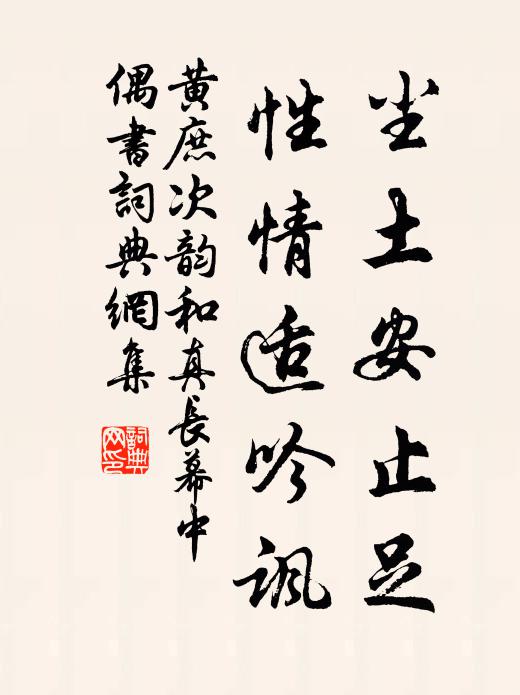 尘土安止足
性情适吟讽
黄庶次韵和真长幕中
偶书詞典網集
詞典网印